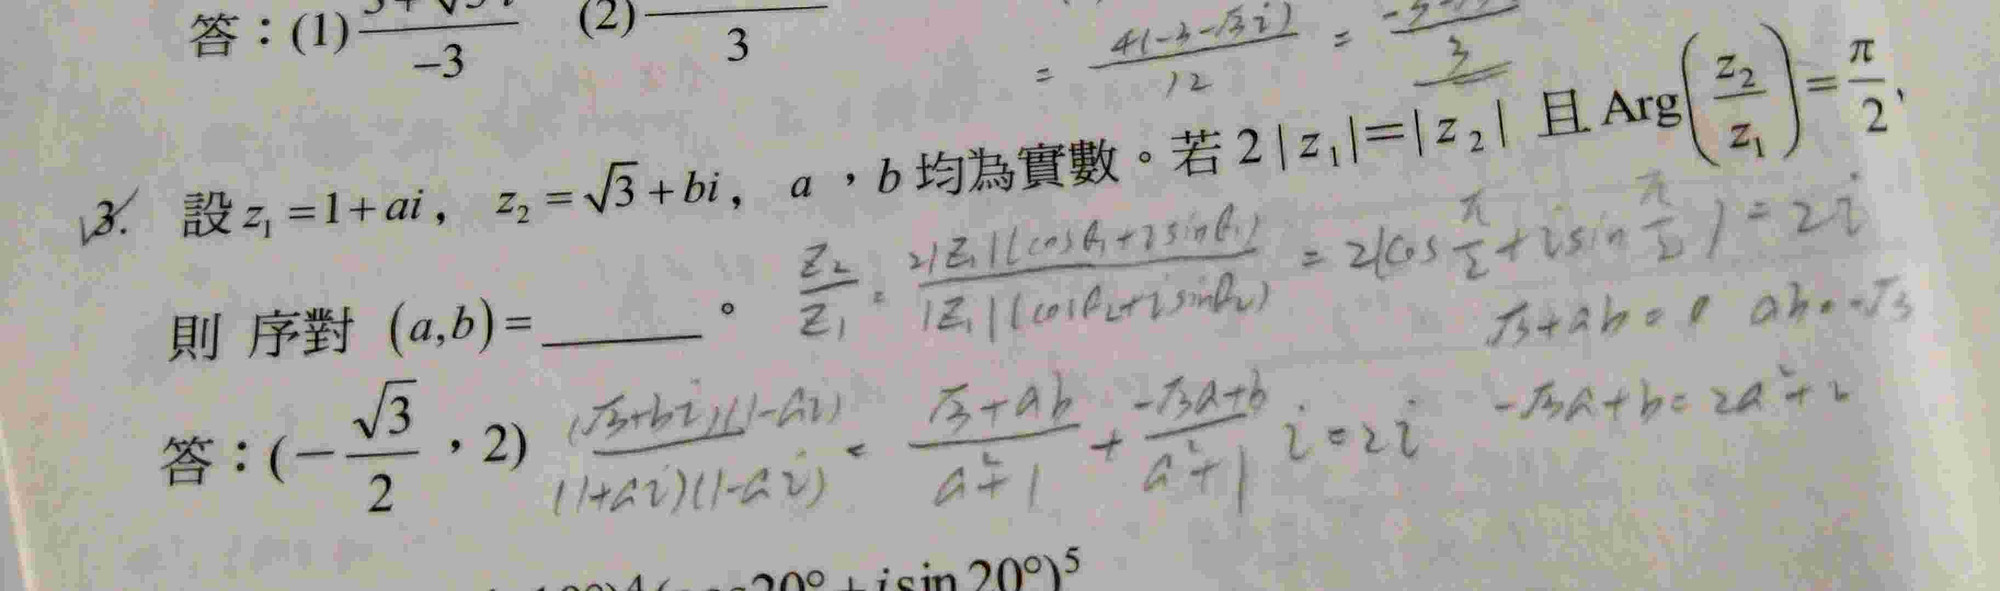 答：(1) -3 (2) 3
= 4(-3-√3i)/12 = 3
3. 設 z₁ = 1 + ai， z₂ = √3 + bi， a ，b 均為實數。若 2 | z₁ | = | z₂ | 且 Arg(z₂/z₁) = π/2，
則 序對 (a,b) = ______ 。
Z₂/Z₁ = 2|Z₁|(cosθ₁+isinθ₁)/|Z₁|(cosθ₂+isinθ₂) = 2(cos π/2 + isin π/2) = 2i
√3+ab=0 ab=-√3
答：(-√3/2 ，2)
(√3+bi)(1-ai)/(1+ai)(1-ai) = √3+ab/a²+1 + -√3a+b/a²+1 i = 2i
-√3a+b=2a²+2
20°+isin20°)⁵